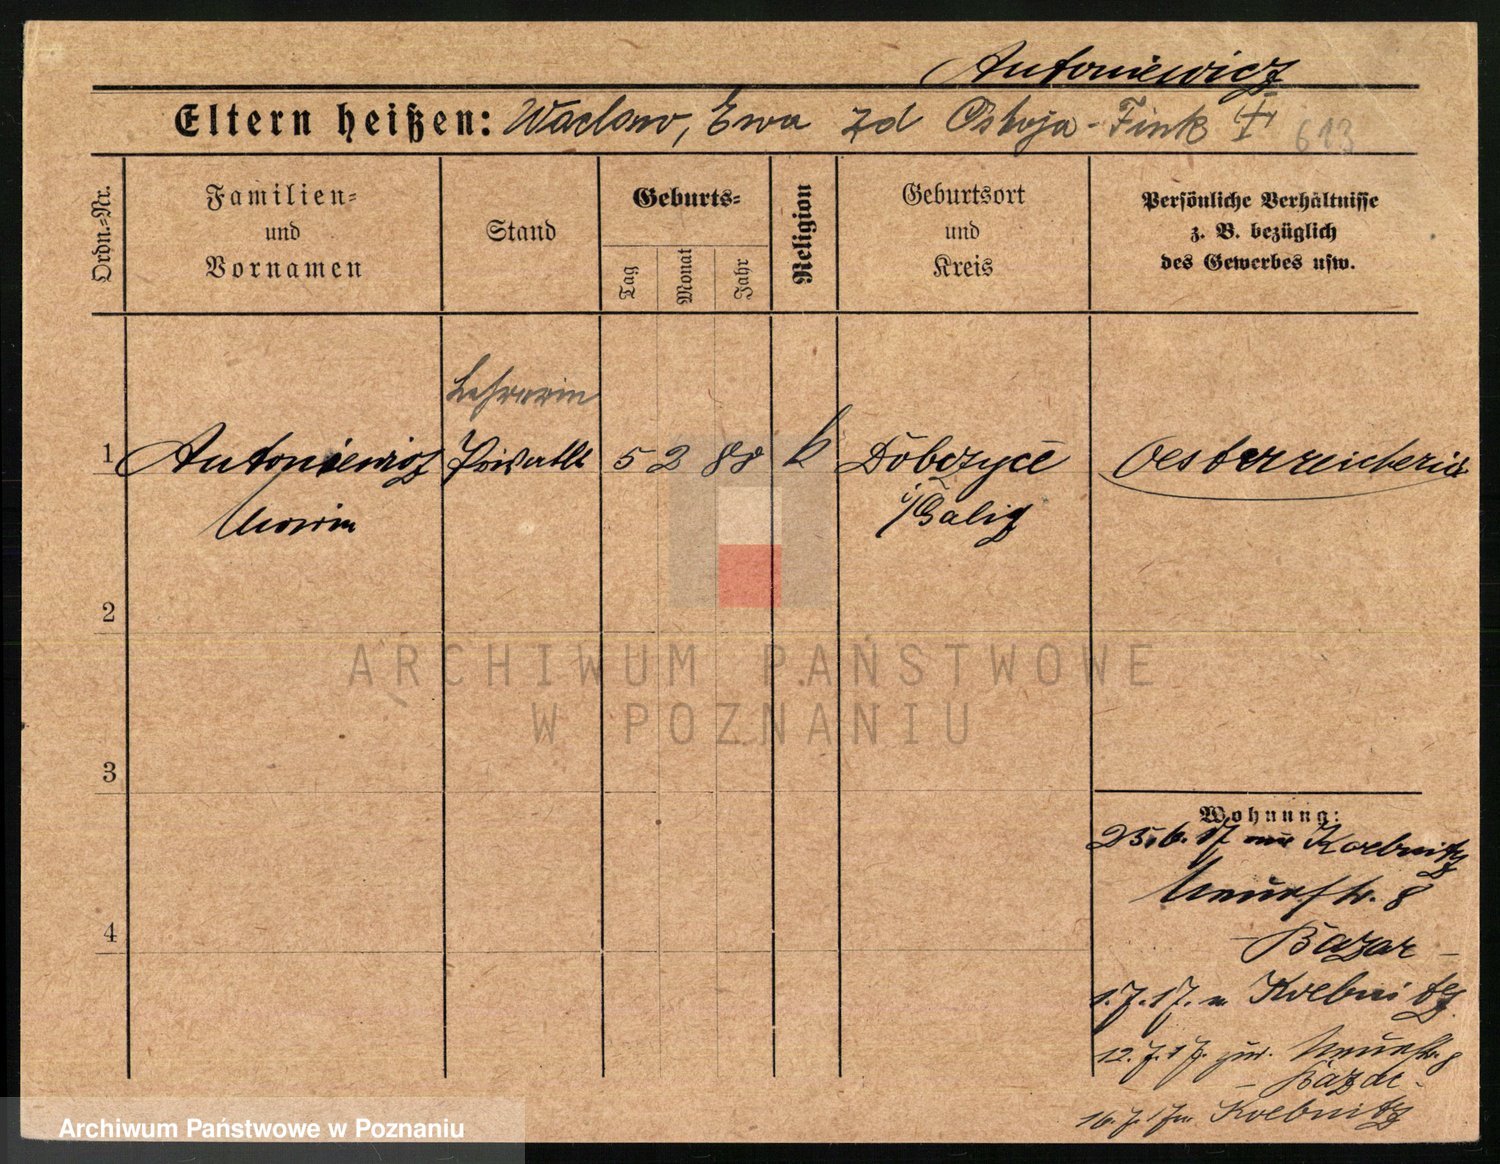 Antoniewicz
Eltern heißen: Wacław, Ewa zd Ostoja-Fink † 613
Ordn.-Nr.
Familien-
und
Vornamen
Stand
Geburts-
Tag
Monat
Jahr
Religion
Geburtsort
und
Kreis
Persönliche Verhältnisse
z. B. bezüglich
des Gewerbes usw.
Lehrerin
1 Antoniewicz Private 5 2 88 k Dobczyce Oesterreicherin
Maria i/Galiz
2
3
4
Wohnung:
25.6.17 Koebnitz
Neuestr. 8
Bazar -
1.7.17. n Koebnitz.
12.7.17. zur. Neuestr. 8
- Bazar -
16.7.17 n Koebnitz
ARCHIWUM PAŃSTWOWE
W POZNANIU
Archiwum Państwowe w Poznaniu